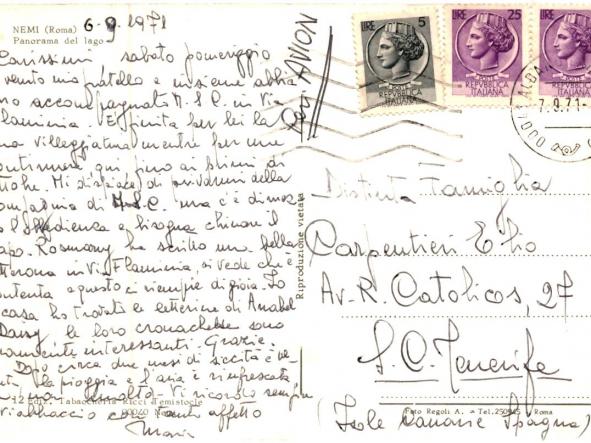 NEMI (Roma)
Panorama del lago
6-9-1971
Carissimi sabato pomeriggio
venuto mio fratello e insieme abbia
mo accompagnato M.S.C. in Via
Flaminia. E' finita per lei la
villeggiatura mentre per me
qui fino ai primi di
Mi dispiace di privarmi della
compagnia di M.S.C. ma c'è di mezzo
l'obbedienza e bisogna chinare il
capo. Rosmary ha scritto una bella
letterona in Via Flaminia, si vede che è
contenta e questo ci riempie di gioia. In
casa ho trovato le letterine di Anabel
Daisy le loro cronachette sono
veramente interessanti. Grazie.
Dopo circa due mesi di siccità è
la pioggia e l'aria è rinfrescata
Vi ricordo sempre
vi abbraccio con tanto affetto
Maria
12 Ediz. Tabaccheria Ricci Temistocle
00040
PAR AVION
Riproduzione vietata
LIRE 5
POSTE REPVBBLICA ITALIANA
LIRE 25
REPVBBLICA ITALIANA
LIRE
REPVBBLICA ITALIANA
7.9.71
Distinta Famiglia
Carpentieri Elio
Av. R. Catolicos, 27
S.C. Tenerife
(Isole Canarie Spagna)
Foto Regoli A. - Tel. - Roma